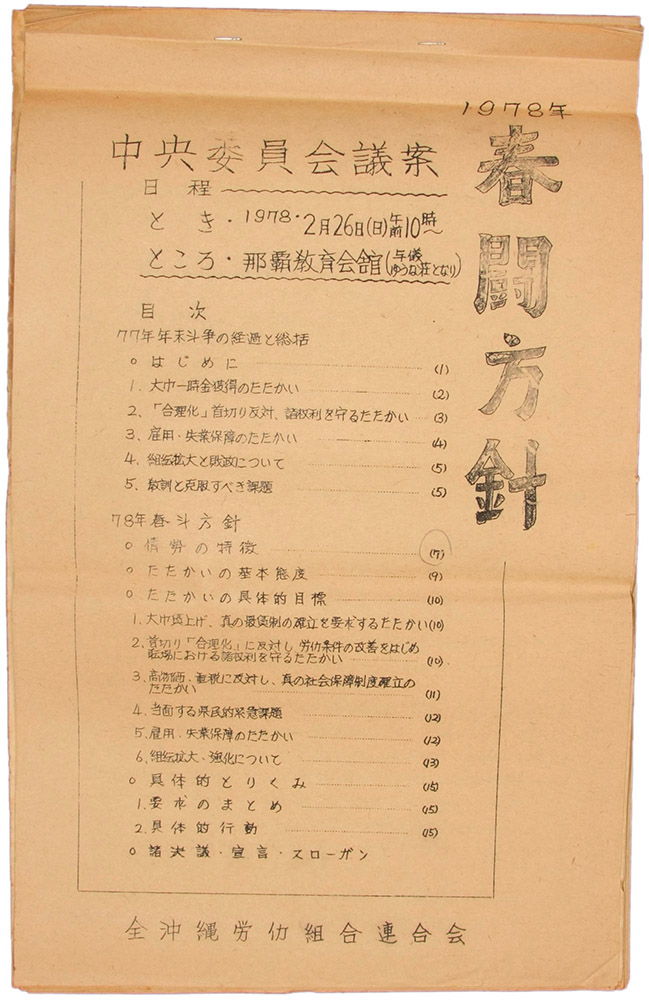 1978年
春闘方針
中央委員会議案
日程
とき・1978・2月26日(日)午前10時〜
ところ・那覇教育会館(与儀ゆうな荘となり)
目次
77年年末斗争の経過と総括
○ はじめに (1)
1. 大巾一時金獲得のたたかい (2)
2. 「合理化」首切り反対、諸权利を守るたたかい (3)
3. 雇用・失業保障のたたかい (4)
4. 組伝拡大と政について (5)
5. 教訓と克服すべき課題 (5)
78年春斗方針
○ 情勢の特徴 (7)
○ たたかいの基本態度 (9)
○ たたかいの具体的目標 (10)
1. 大巾賃上げ、真の最賃制の確立を要求するたたかい (10)
2. 首切り「合理化」に反対し労仂条件の改善をはじめ
職場における諸权利を守るたたかい (10)
3. 高物価、重税に反対し、真の社会保障制度確立の
たたかい (11)
4. 当面する県民的緊急課題 (12)
5. 雇用・失業保障のたたかい (12)
6. 組伝拡大・強化について (13)
○ 具体的とりくみ (15)
1. 要求のまとめ (15)
2. 具体的行動 (15)
○ 諸決議・宣言・スローガン
全沖縄労仂組合連合会